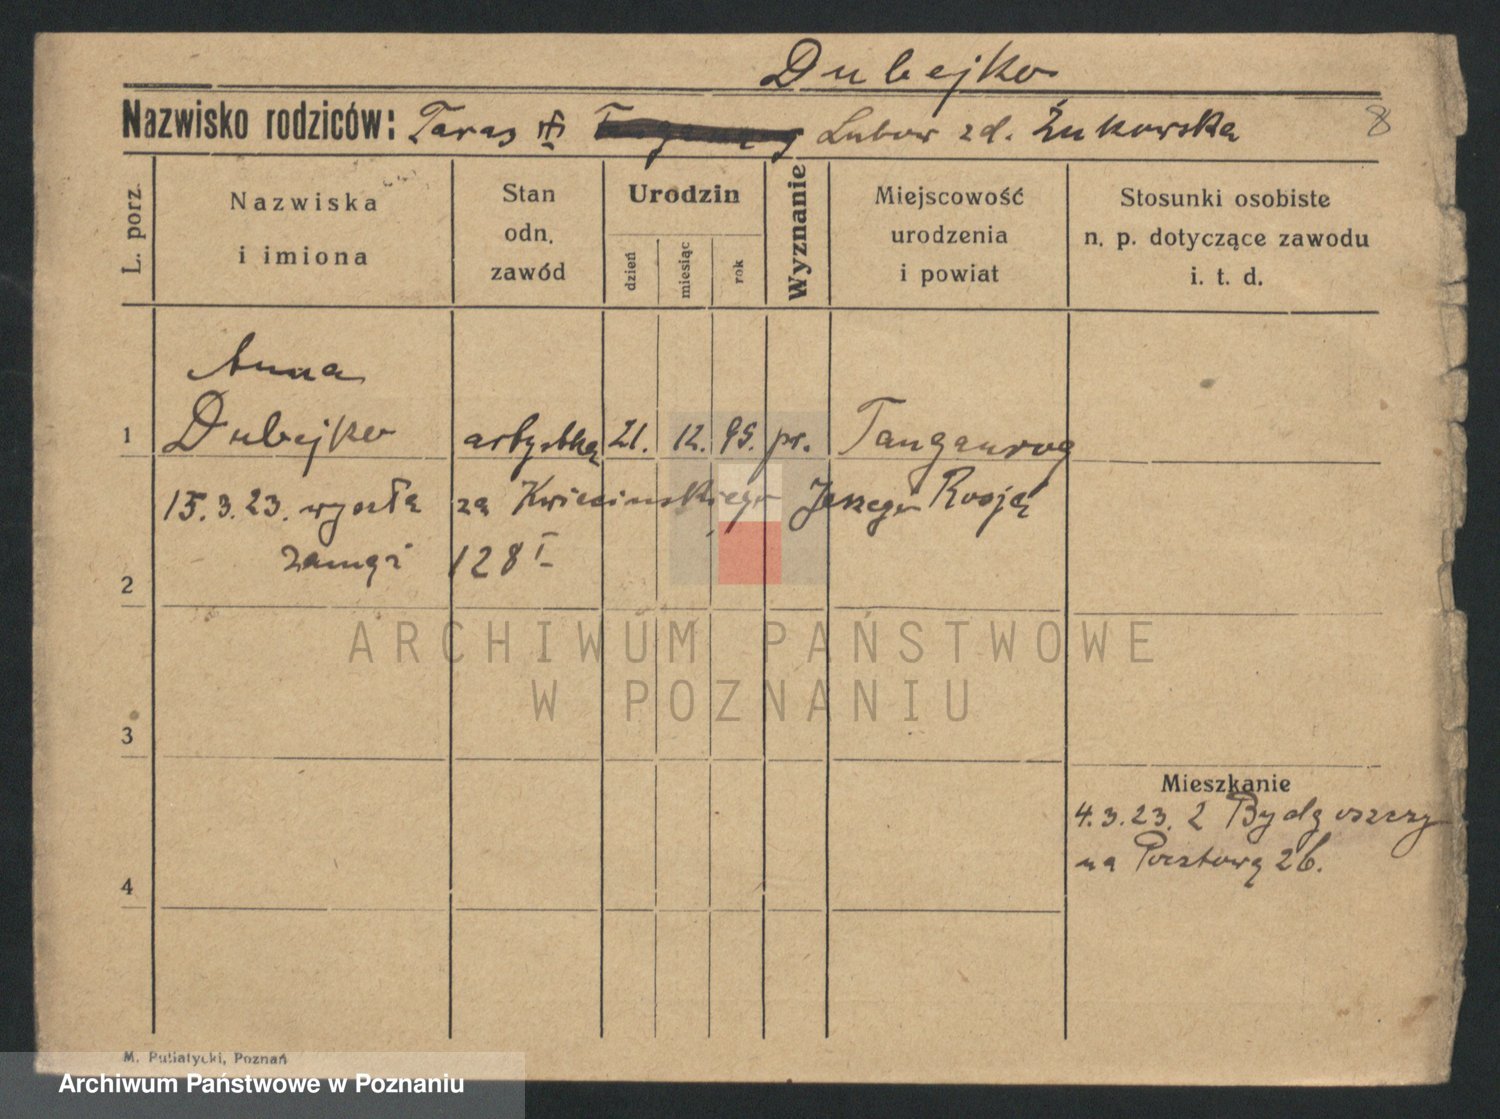 Dubejko
Nazwisko rodziców: Taras Lubow zd. Żukowska 8
L. porz.
Nazwiska i imiona
Stan odn. zawód
Urodzin
dzień
miesiąc
rok
Wyznanie
Miejscowość urodzenia i powiat
Stosunki osobiste n. p. dotyczące zawodu i. t. d.
Anna
1 Dubejko artystka 21. 12. 95. pr. Tanganrog
15.3.23. wyszła za Kwiecinskiego Jerzego Rosja
zamąż 128 I
2
ARCHIWUM PAŃSTWOWE
W POZNANIU
3
Mieszkanie
4.3.23. z Bydgoszczy
na Pocztową 26.
4
M. Puliatycki, Poznań
Archiwum Państwowe w Poznaniu